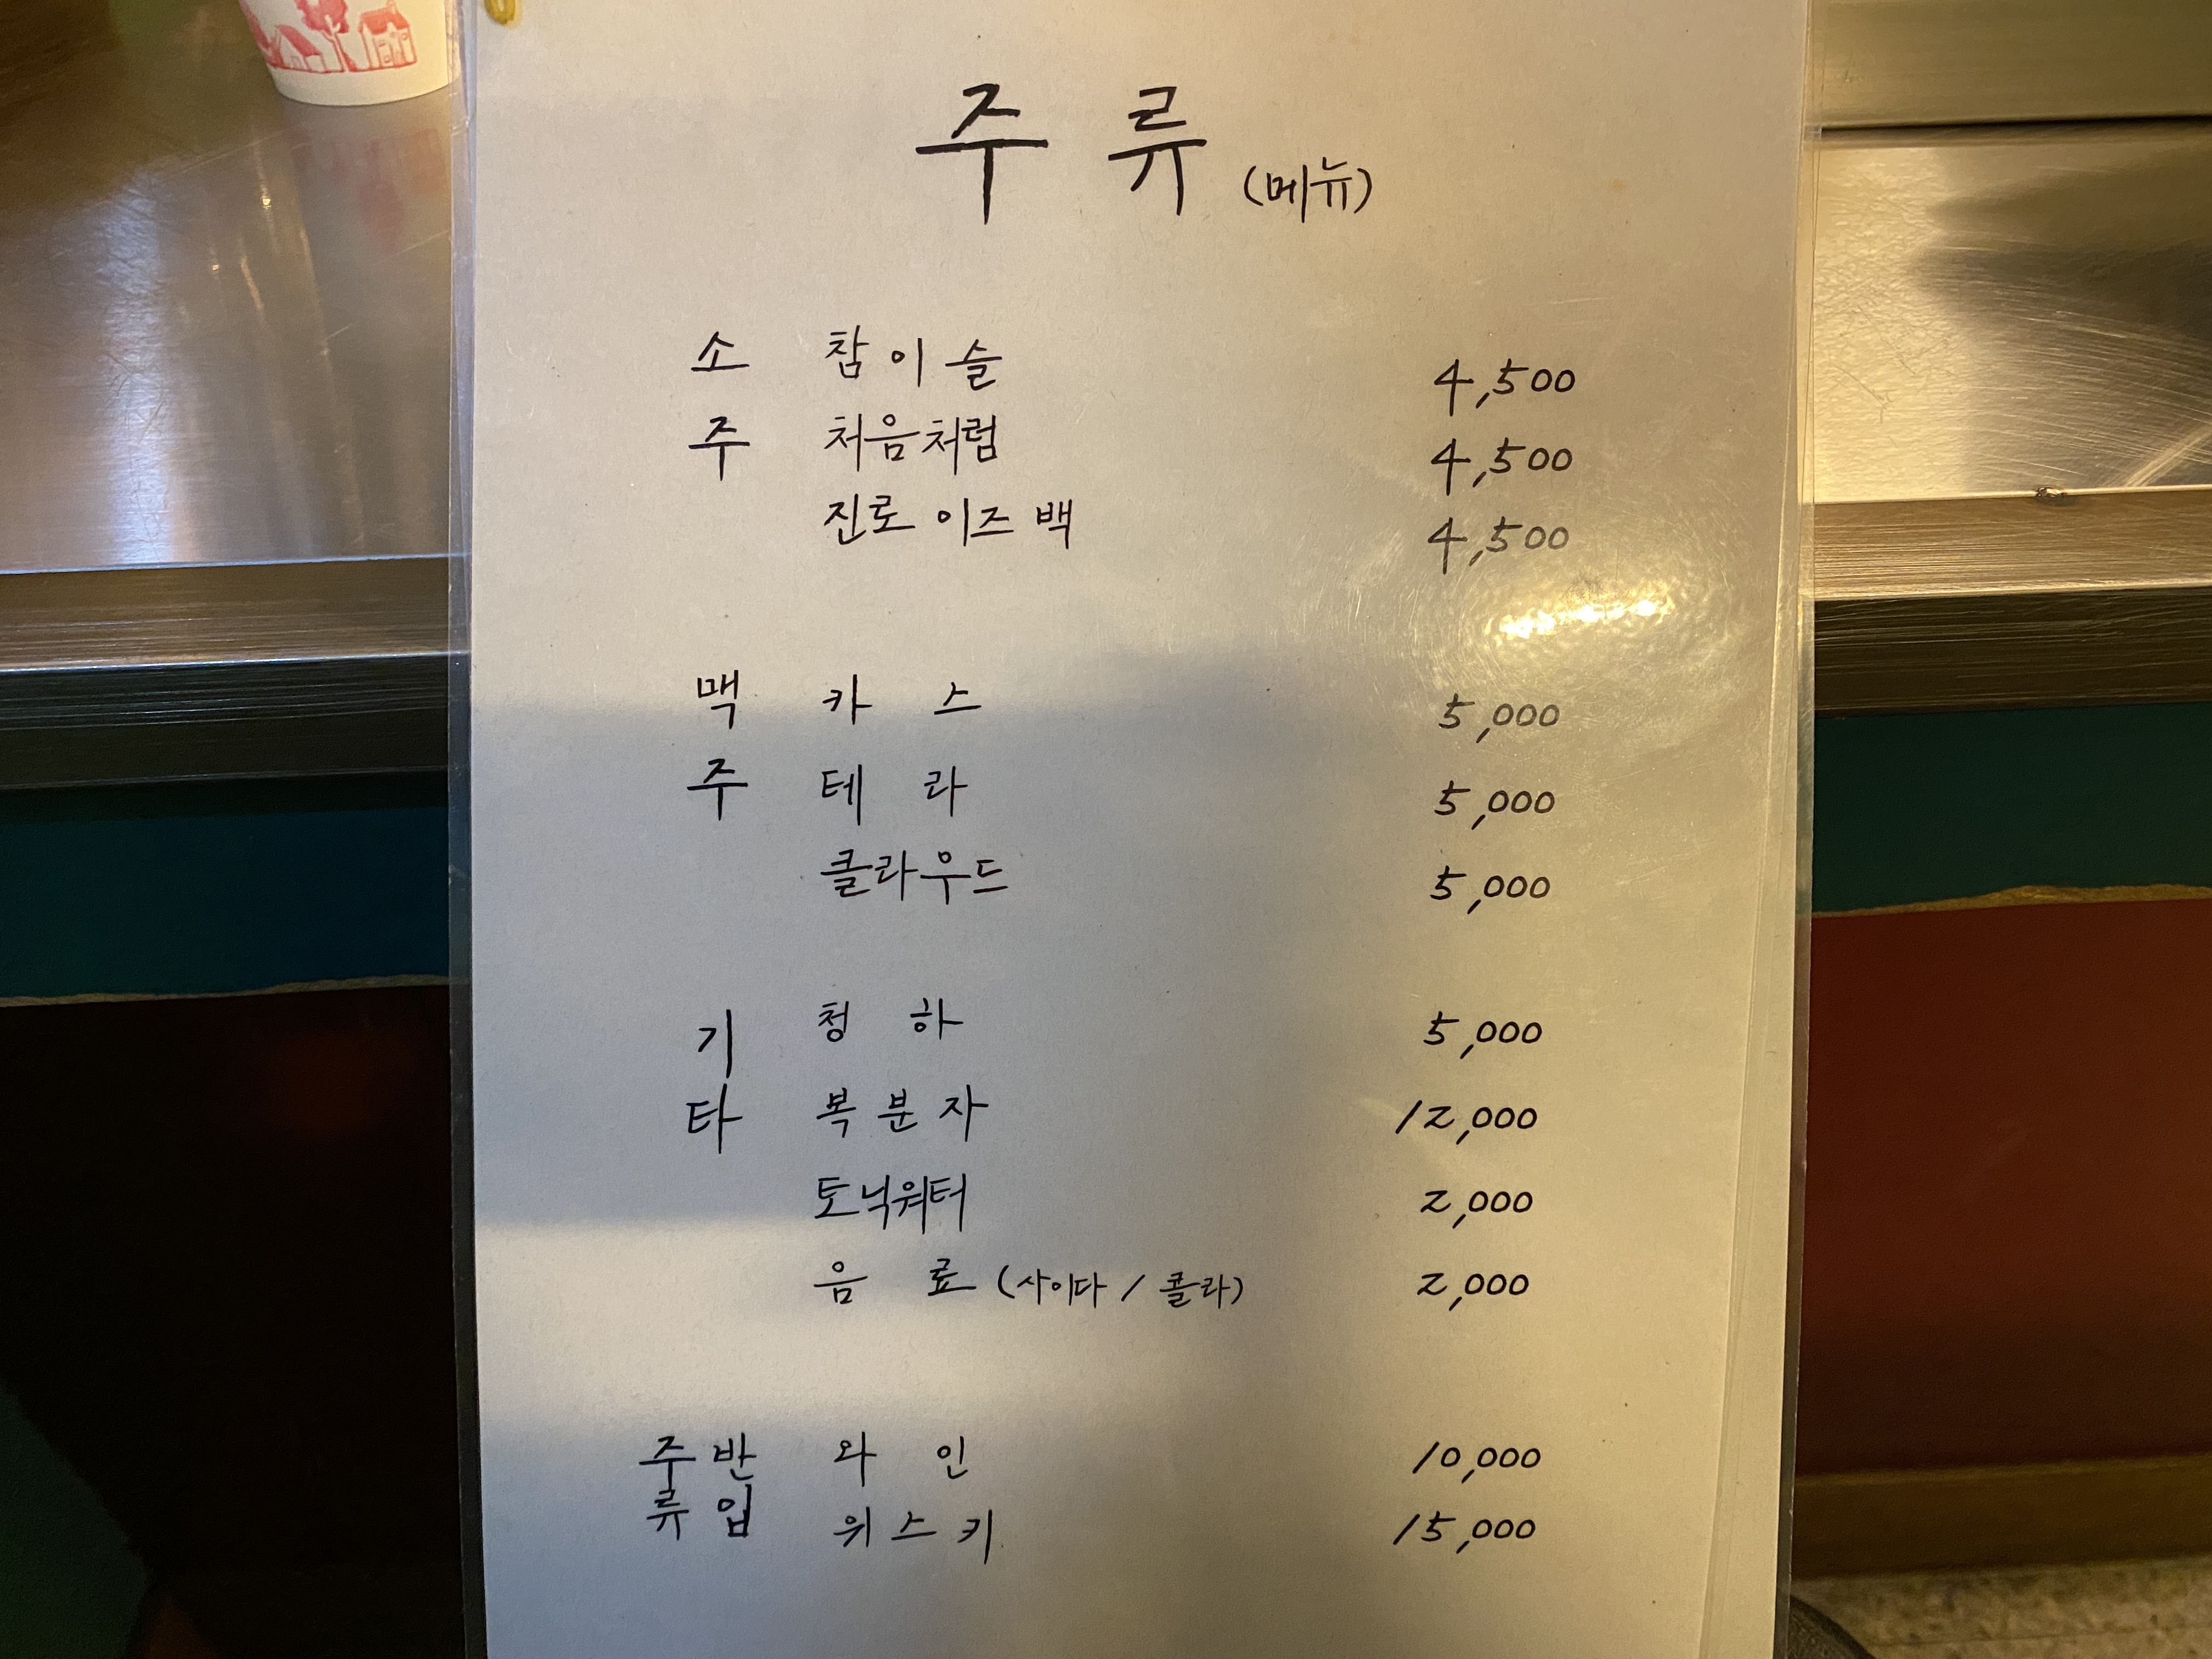 주류 (메뉴)
소 참이슬 4,500
주 처음처럼 4,500
진로 이즈백 4,500
맥 카스 5,000
주 테라 5,000
클라우드 5,000
기 청하 5,000
타 복분자 12,000
토닉워터 2,000
음료 (사이다 / 콜라) 2,000
주반 와인 10,000
류입 위스키 15,000